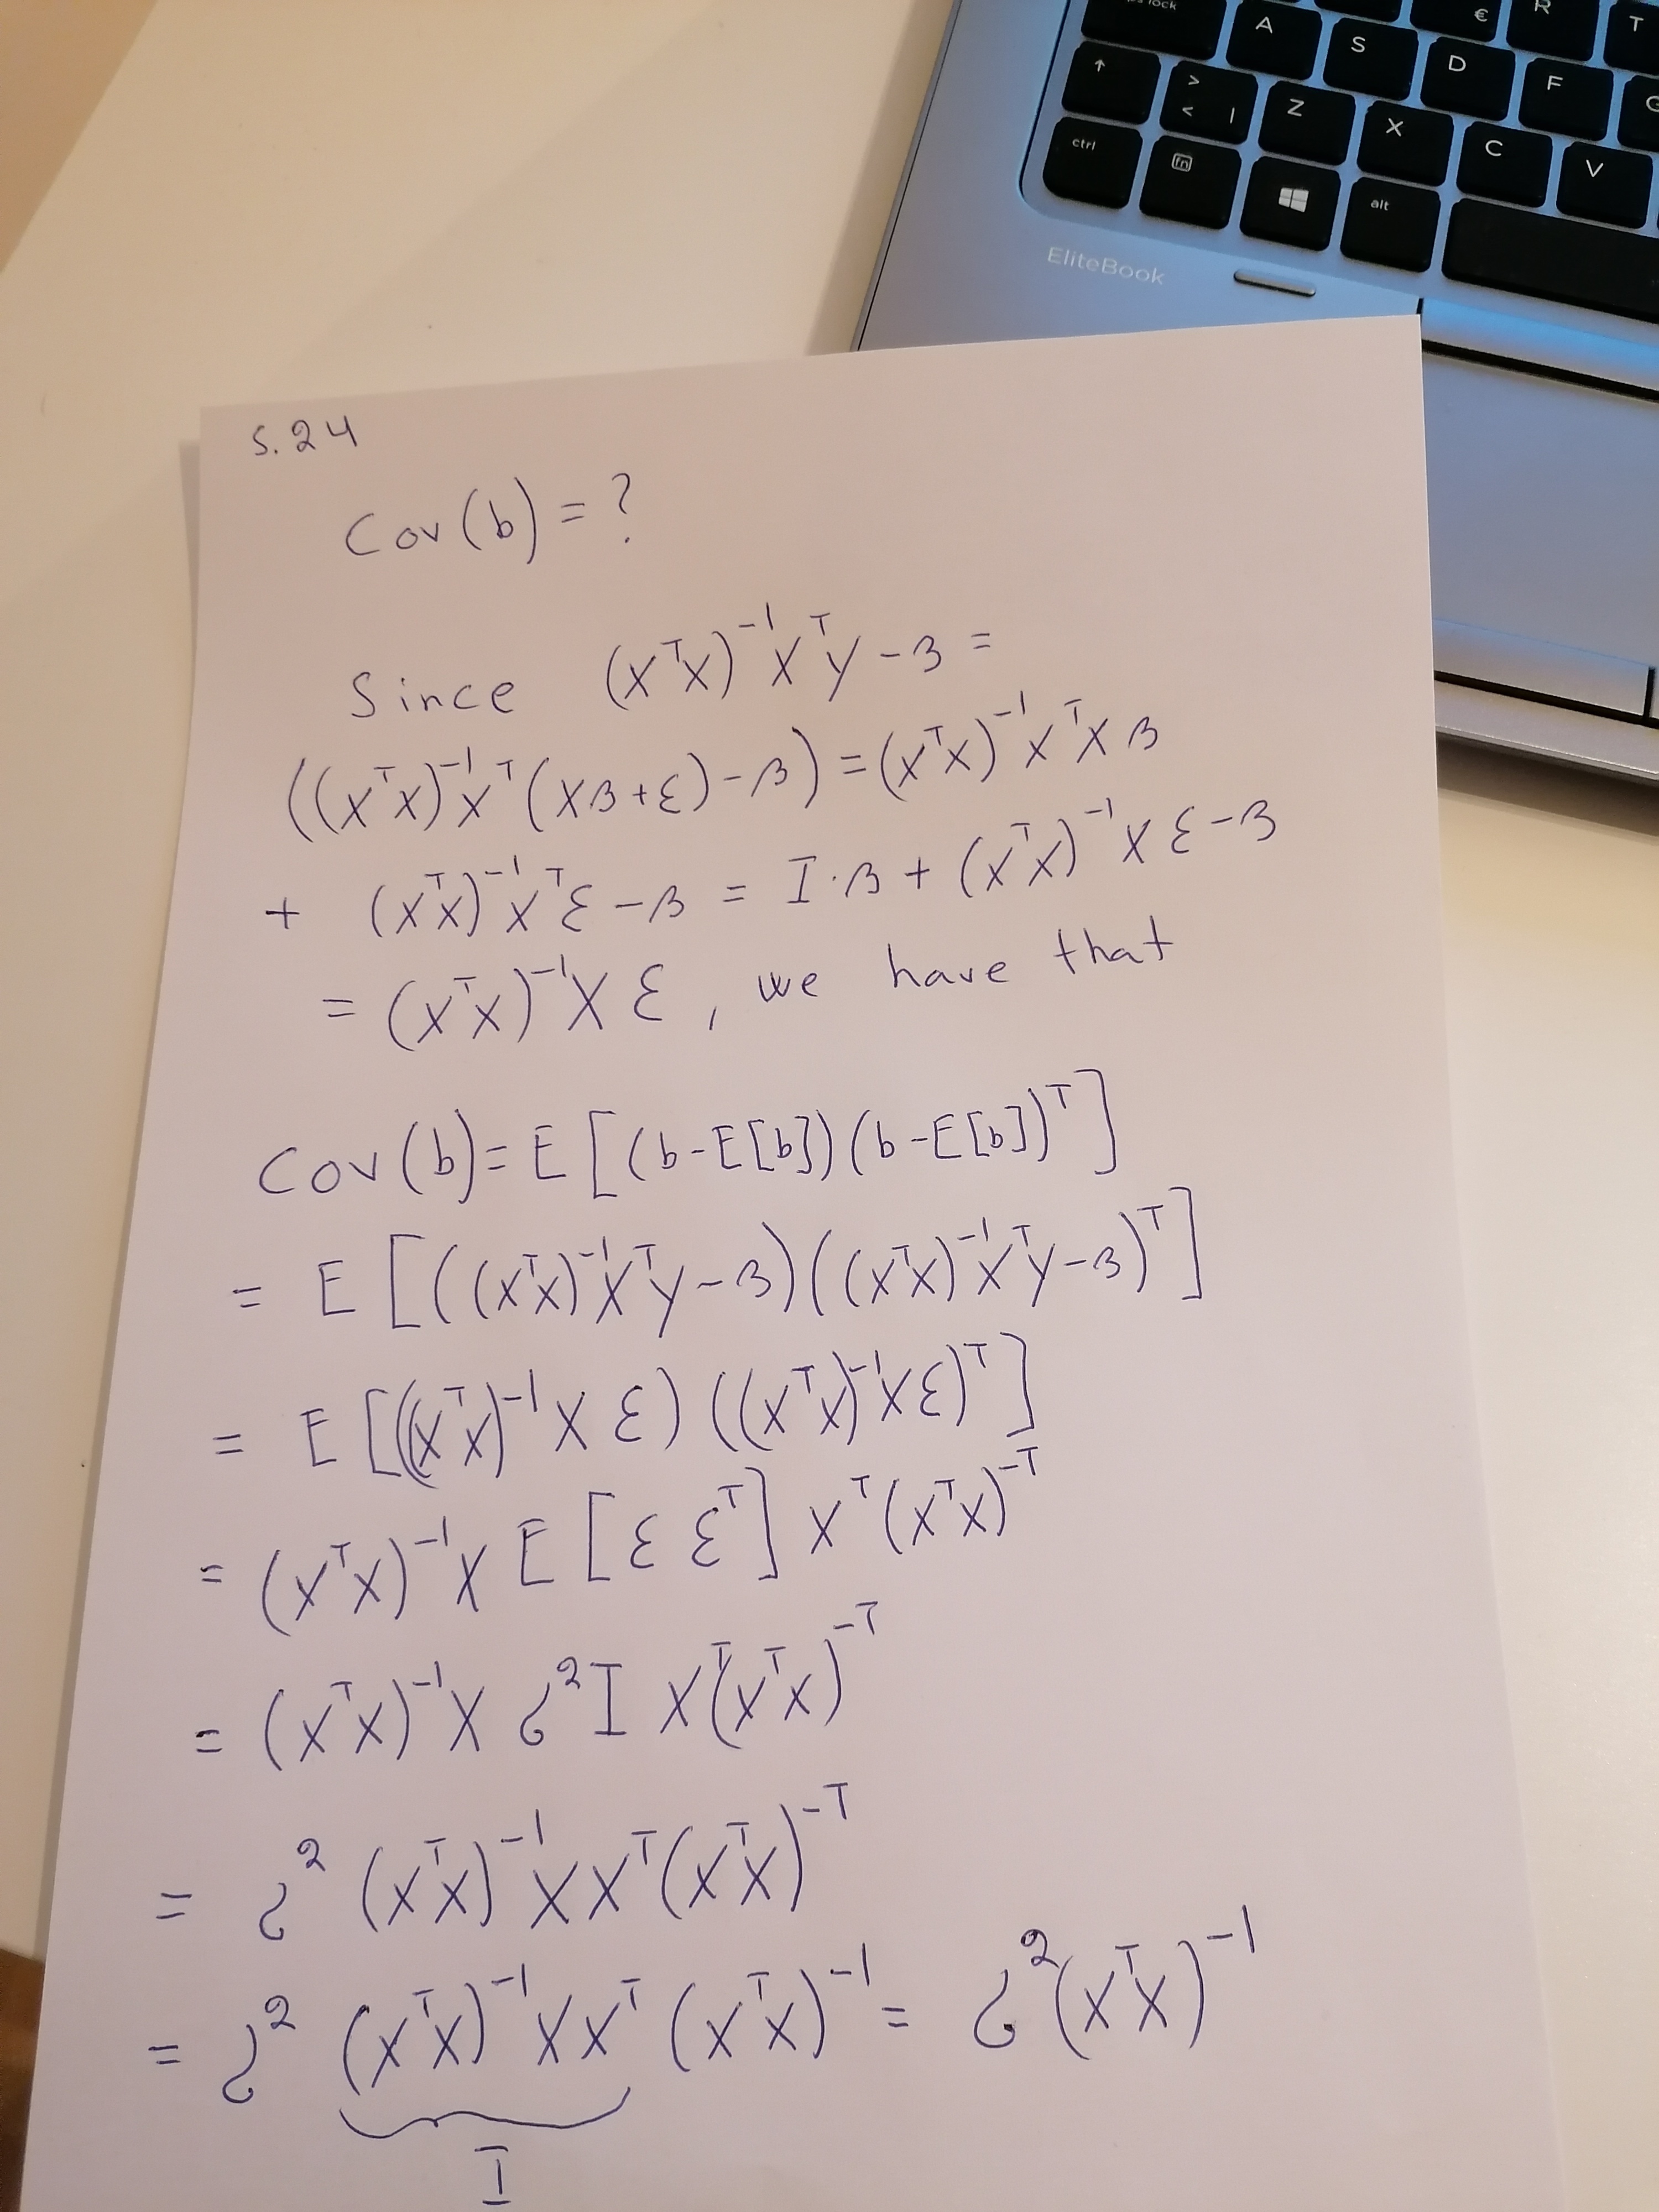 ps lock
A
S
D
F
G
€
R
T
↑
>
< |
Z
X
C
V
ctrl
fn
alt
EliteBook
S. 24
Cov(b) = ?
Since (XᵀX)⁻¹XᵀY - β =
((XᵀX)⁻¹Xᵀ(Xβ + ε) - β) = (XᵀX)⁻¹XᵀXβ
+ (XᵀX)⁻¹Xᵀε - β = I·β + (XᵀX)⁻¹Xε - β
= (XᵀX)⁻¹Xε, we have that
Cov(b) = E[(b - E[b])(b - E[b])ᵀ]
= E[((XᵀX)⁻¹XᵀY - β)((XᵀX)⁻¹XᵀY - β)ᵀ]
= E[((XᵀX)⁻¹Xε)((XᵀX)⁻¹Xε)ᵀ]
= (XᵀX)⁻¹X E[ε εᵀ] Xᵀ(XᵀX)⁻ᵀ
= (XᵀX)⁻¹X σ²I Xᵀ(XᵀX)⁻ᵀ
= σ² (XᵀX)⁻¹XXᵀ(XᵀX)⁻ᵀ
= σ² (XᵀX)⁻¹XXᵀ (XᵀX)⁻¹ = σ²(XᵀX)⁻¹
I